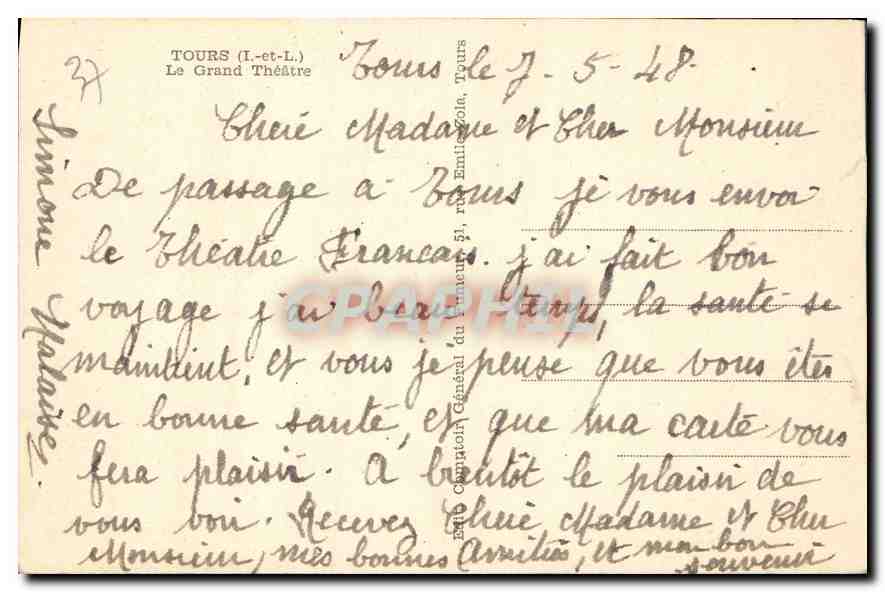 37
TOURS (I.-et-L.)
Le Grand Théâtre
Tours le 7-5-48.
Cheré Madame et Cher Monsieur
De passage a Tours je vous envoi
le théatre Francais. j'ai fait bon
voyage j'ai beau temps, la santé se
maintient, et vous je pense que vous êtes
en bonne santé, et que ma carte vous
fera plaisir. A bientôt le plaisir de
vous voir. Recevez Cheré Madame et Cher
Monsieur, mes bonnes Amitiés, et mon bon
souvenir
Simone Malaise.
Edit. Comptoir Général du Rameur, 51, rue Emile-Zola, Tours
CPAPHIL